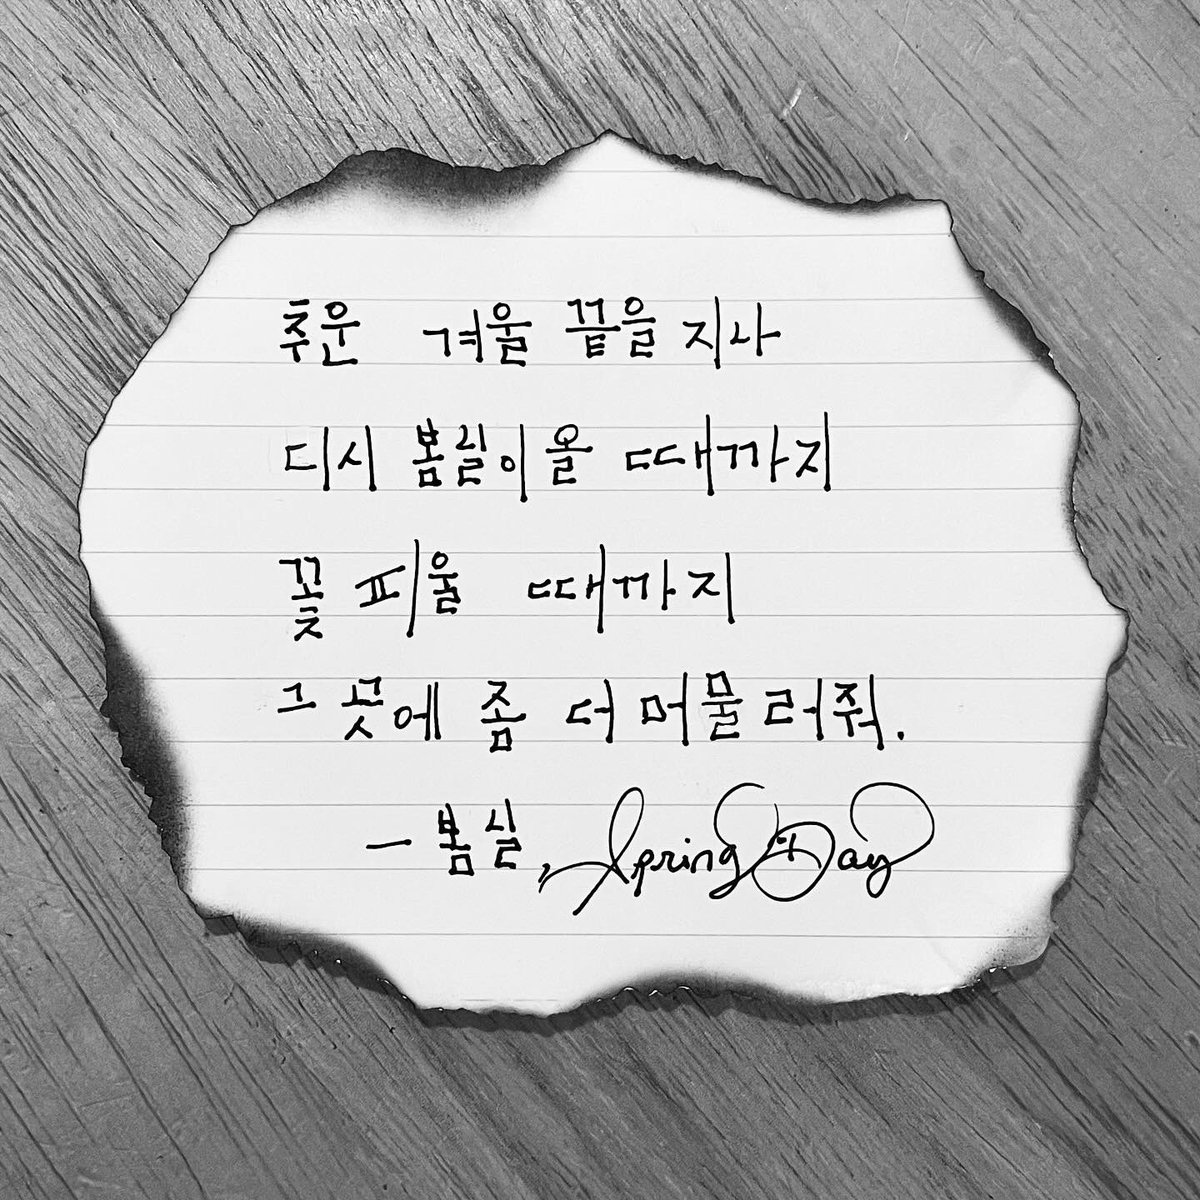 추운 겨울 끝을 지나
디시 봄실이 올 때까지
꽃 피울 때까지
그 곳에 좀 더 머물러줘.
- 봄실, Spring Day